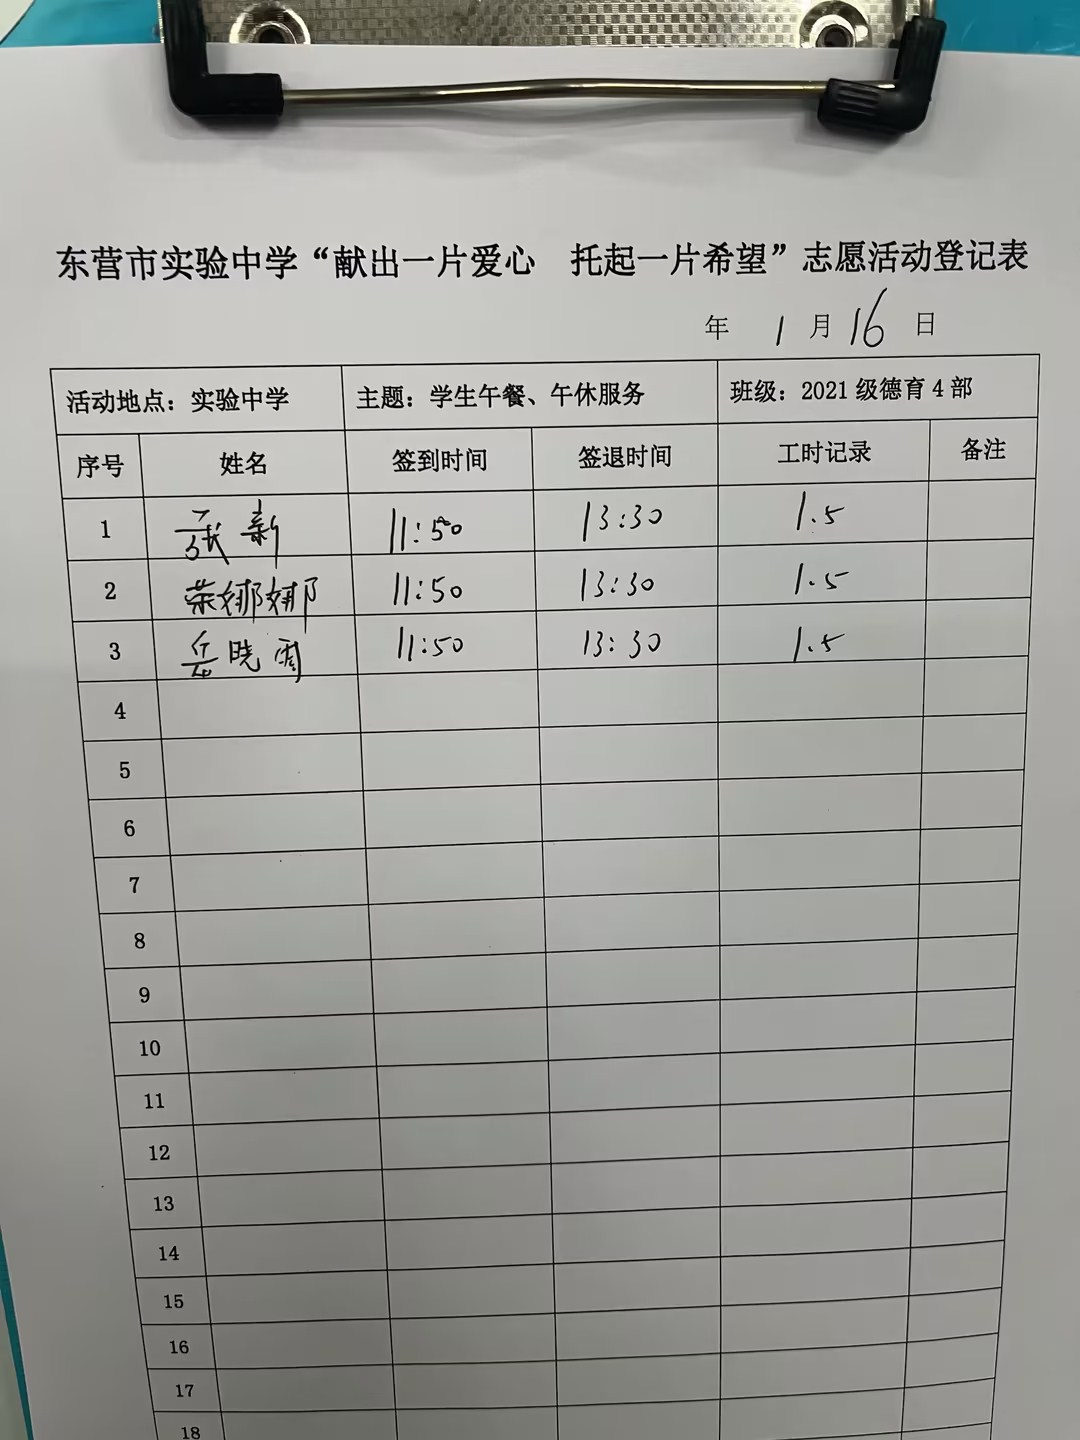 东营市实验中学“献出一片爱心 托起一片希望”志愿活动登记表
年 1 月 16 日
活动地点：实验中学 主题：学生午餐、午休服务 班级：2021 级德育 4 部
序号 姓名 签到时间 签退时间 工时记录 备注
1 张新 11:50 13:30 1.5
2 荣娜娜 11:50 13:30 1.5
3 岳晓雨 11:50 13:30 1.5
4
5
6
7
8
9
10
11
12
13
14
15
16
17
18